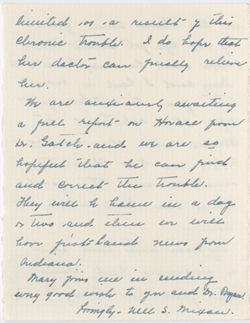 limited as a result of this
chronic trouble. I do hope that
her doctor can finally relieve
her.
We are anxiously awaiting
a full report on Horace from
Dr. Gatch and we are so
hopeful that he can find
and correct the trouble.
They will be home in a day
or two and then we will
have first-hand news from
Indiana.
Mary joins me in sending
very good wish to you and Dr. Bryan.
Sincerely - Will S.